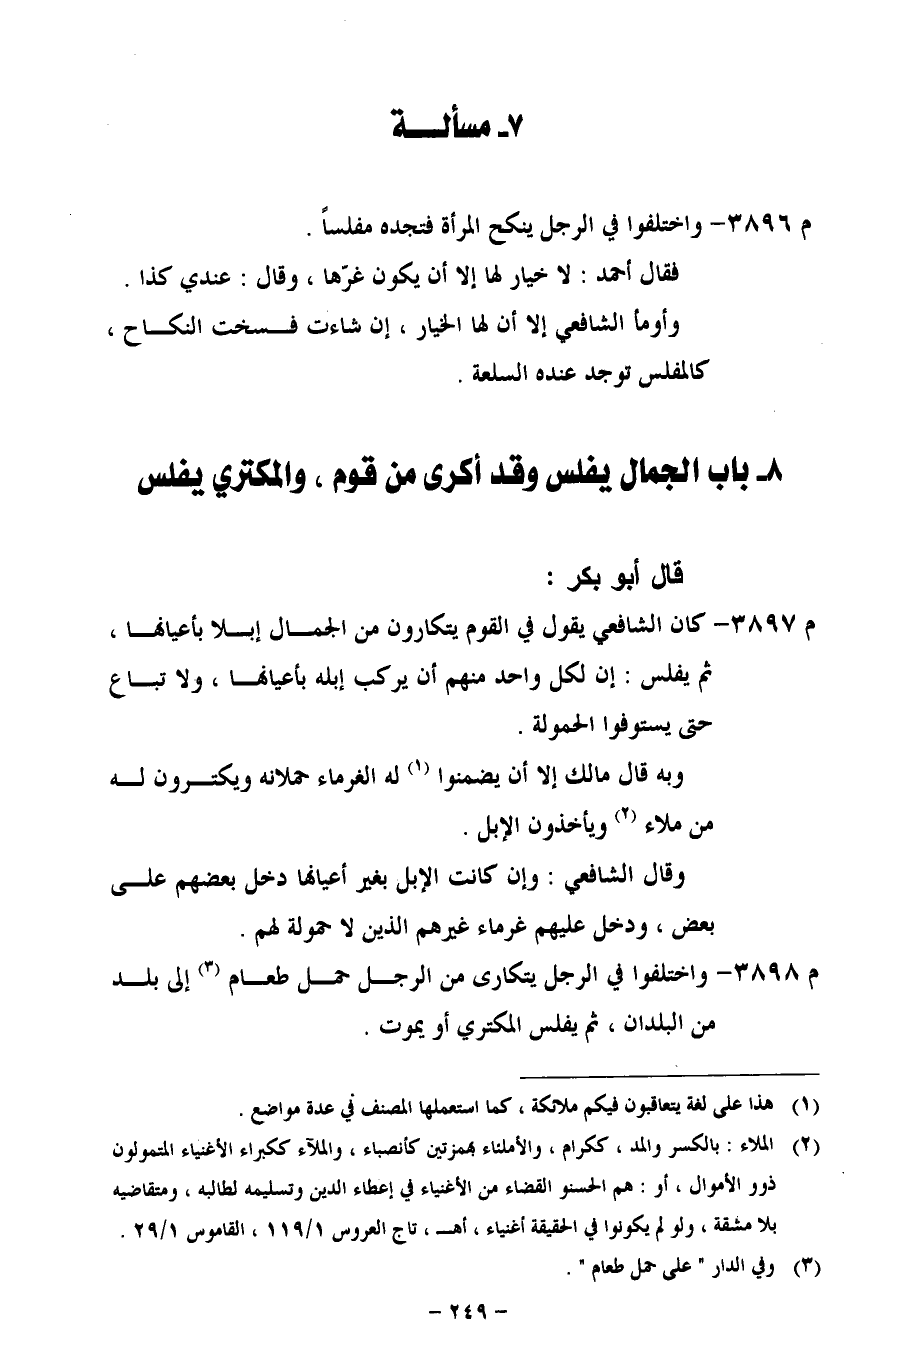 ٧ـ مسألـــة
م ٣٨٩٦– واختلفوا في الرجل ينكح المرأة فتجده مفلساً .
فقال أحمد : لا خيار لها إلا أن يكون غرّها ، وقال : عندي كذا .
وأومأ الشافعي إلا أن لها الخيار ، إن شاءت فـــسخت النكـــاح ،
كالمفلس توجد عنده السلعة .
٨ـ باب الجمال يفلس وقد أكرى من قوم ، والمكتري يفلس
قال أبو بكر :
م ٣٨٩٧– كان الشافعي يقول في القوم يتكارون من الجمـــال إبـــلا بأعيانهـــا ،
ثم يفلس : إن لكل واحد منهم أن يركب إبله بأعيانهـــا ، ولا تبـــاع
حتى يستوفوا الحمولة .
وبه قال مالك إلا أن يضمنوا (١) له الغرماء حملانه ويكتـــرون لـــه
من ملاء (٢) ويأخذون الإبل .
وقال الشافعي : وإن كانت الإبل بغير أعيانها دخل بعضهم علـــى
بعض ، ودخل عليهم غرماء غيرهم الذين لا حمولة لهم .
م ٣٨٩٨– واختلفوا في الرجل يتكارى من الرجـــل حمـــل طعـــام (٣) إلى بلـــد
من البلدان ، ثم يفلس المكتري أو يموت .
(١) هذا على لغة يتعاقبون فيكم ملائكة ، كما استعملها المصنف في عدة مواضع .
(٢) الملاء : بالكسر والمد ، ككرام ، والأملئاء بهمزتين كأنصباء ، والملآء ككبراء الأغنياء المتمولون
ذوو الأموال ، أو : هم الحسنو القضاء من الأغنياء في إعطاء الدين وتسليمه لطالبه ، ومتقاضيه
بلا مشقة ، ولو لم يكونوا في الحقيقة أغنياء ، أهـــ ، تاج العروس ١١٩/١ ، القاموس ٢٩/١ .
(٣) وفي الدار " على حمل طعام " .
– ٢٤٩ –